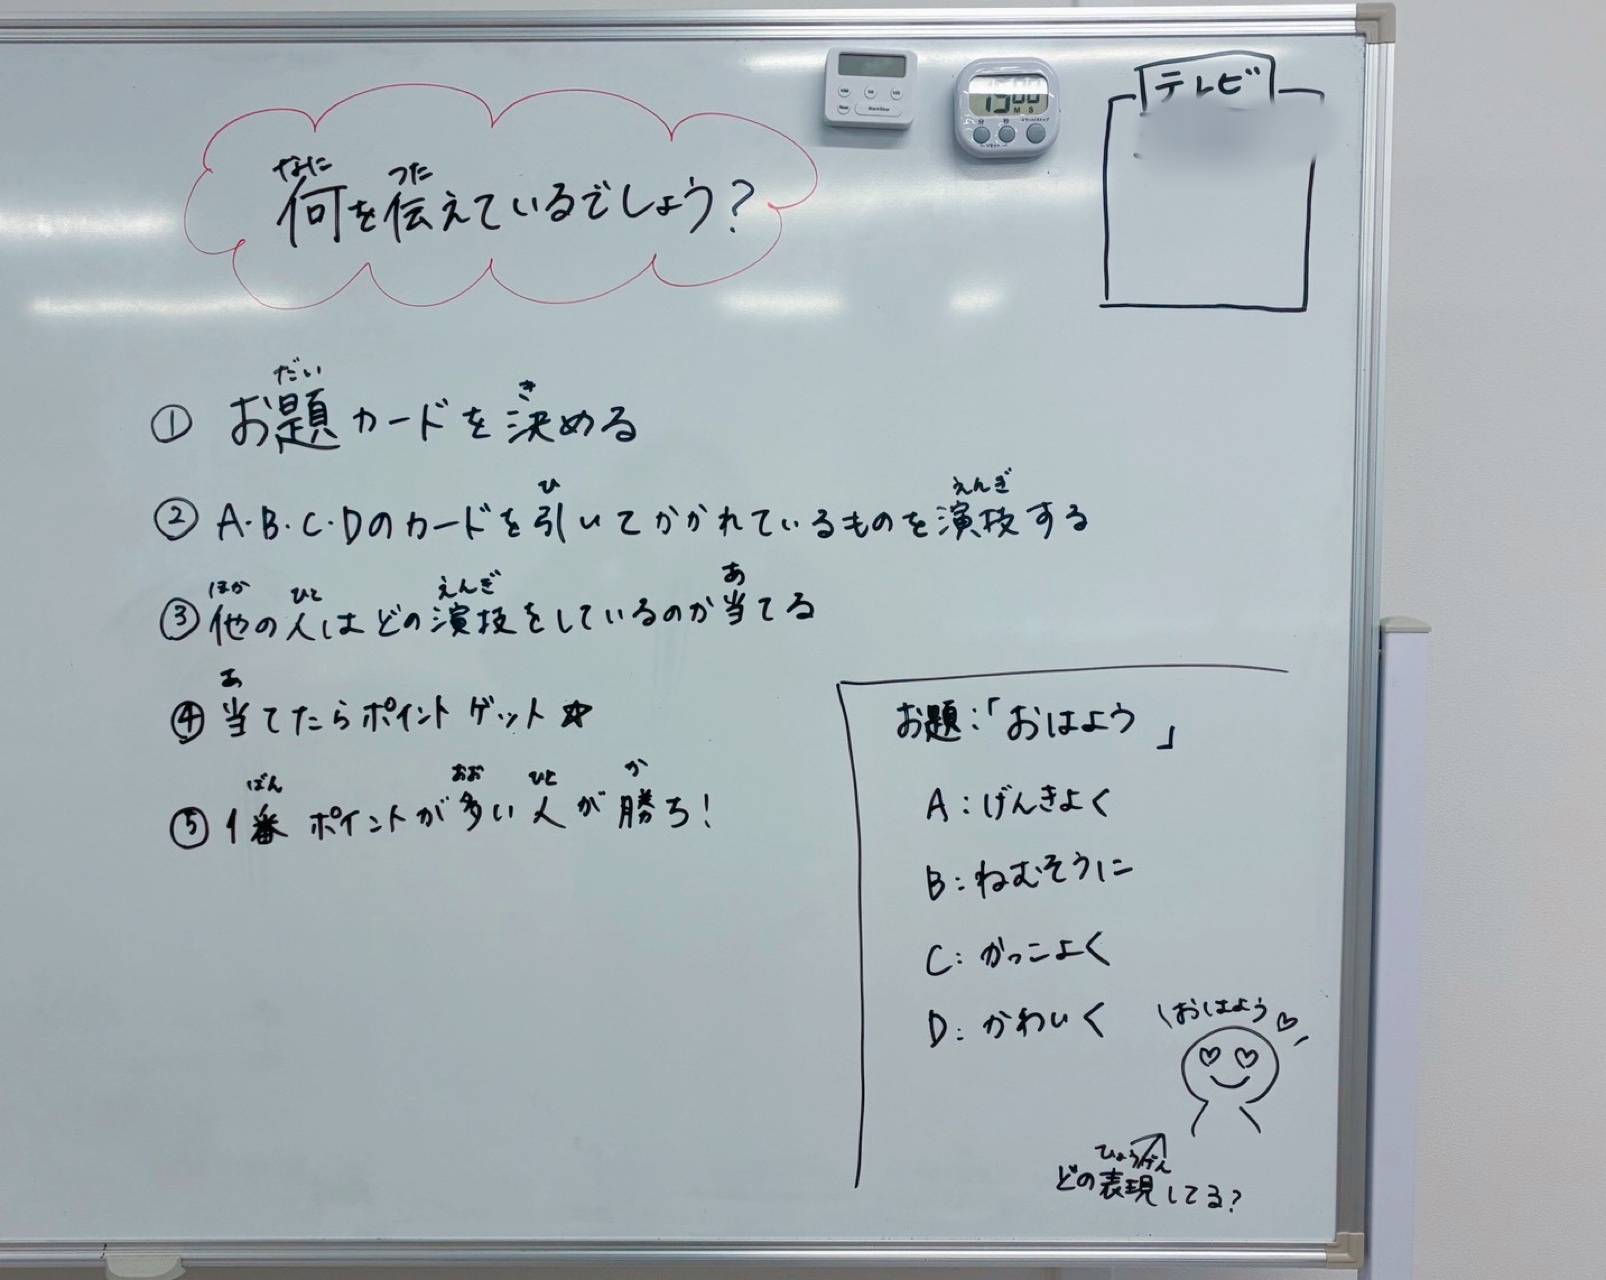 何を伝えているでしょう?
なに
つた
テレビ
① お題カードを決める
だい
き
② A・B・C・Dのカードを引いてかかれているものを演技する
ひ
えんぎ
③ 他の人はどの演技をしているのか当てる
ほか
ひと
えんぎ
あ
④ 当てたらポイントゲット☆
あ
⑤ 1番ポイントが多い人が勝ち!
ばん
おお
ひと
か
お題:「おはよう」
A:げんきよく
B:ねむそうに
C:かっこよく
D:かわいく
おはよう♡
どの表現してる?
ひょうげん
15 00
M S